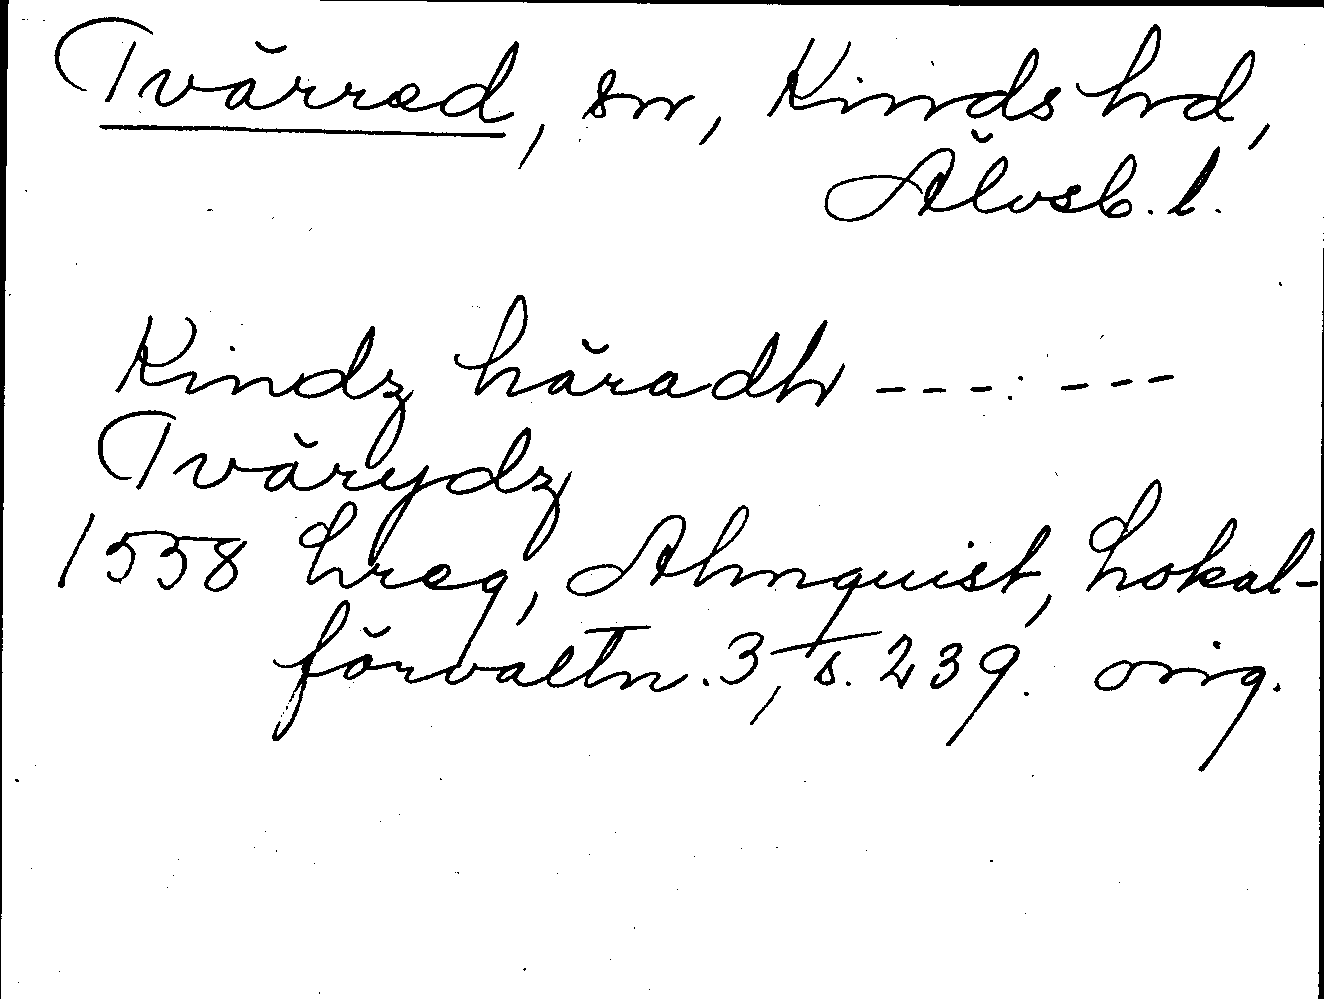 Tvärred, sn, Kinds hd,
Älvsb. l.
Kindz häradh ---:---
Tvärydz
1558 Lreg, Almquist, Lokal-
förvaltn. 3, s. 239. orig.